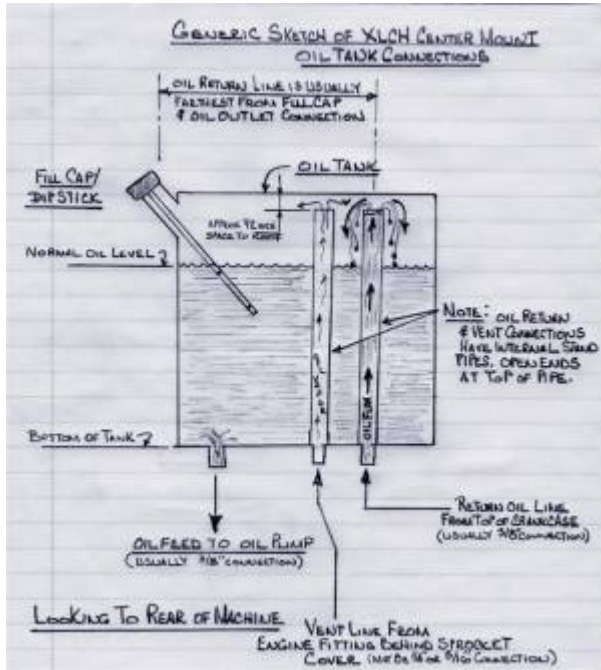 GENERIC SKETCH OF XLCH CENTER MOUNT
OIL TANK CONNECTIONS
OIL RETURN LINE IS USUALLY
FARTHEST FROM FILL CAP
& OIL OUTLET CONNECTION
OIL TANK
FILL CAP/
DIPSTICK
SPACE TO ROOF
NORMAL OIL LEVEL
NOTE: OIL RETURN
& VENT CONNECTIONS
HAVE INTERNAL STAND
PIPES, OPEN ENDS
AT TOP OF PIPE.
OIL FLOW
BOTTOM OF TANK
RETURN OIL LINE
FROM TOP OF CRANKCASE
(USUALLY 3/8" CONNECTION)
OIL FEED TO OIL PUMP
(USUALLY 3/8" CONNECTION)
LOOKING TO REAR OF MACHINE
VENT LINE FROM
ENGINE FITTING BEHIND SPROCKET
COVER (MAY BE 1/4 OR 5/16 CONNECTION)